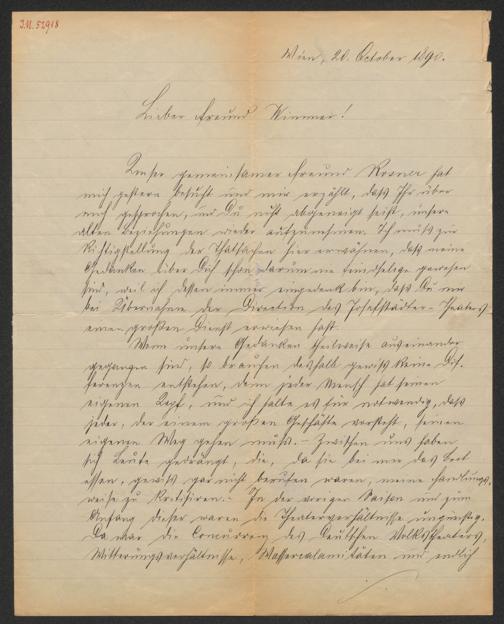 J.N. 52918
Wien, 20. October 1890.
Lieber Freund Wimmer!
Unser gemeinsamer Freund Rosner hat
mich gestern besucht und mir erzählt, daß Ihr über
mich gesprochen, und Du nicht abgeneigt seist, unsere
alten Beziehungen wieder aufzunehmen. Ich muß zur
Richtigstellung der Thatsachen hier erwähnen, daß meine
Gedanken über Dich schon darum nie feindselige gewesen
sind, weil ich dessen immer eingedenk bin, daß Du mir
bei Übernahme der Direction des Josefstädter-Theaters
einen großen Dienst erwiesen hast.
Wenn unsere Gedanken theilweise auseinander
gegangen sind, so brauchen deshalb gewiß keine Dif-
ferenzen entstehen, denn jeder Mensch hat seinen
eigenen Kopf, und ich halte es für nothwendig, daß
jeder, der einem großen Geschäfte vorsteht, seinen
eigenen Weg gehen muß. – Zwischen uns haben
sich Leute gedrängt, die, da sie bei mir das Brot
essen, gewiß gar nicht berufen waren, meine Handlungs-
weise zu kritisiren. – In der vorigen Saison und zum
Anfang dieser waren die Theaterverhältnisse ungünstig.
Da war die Concurrenz des Deutschen Volkstheaters,
Witterungsverhältnisse, Wassercalamitäten und endlich